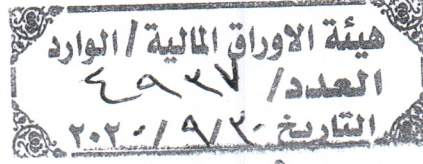 هيئة الاوراق المالية / الوارد
العدد / ٤٩٣٧
التاريخ ٢٠٢٠/٩/٣٠